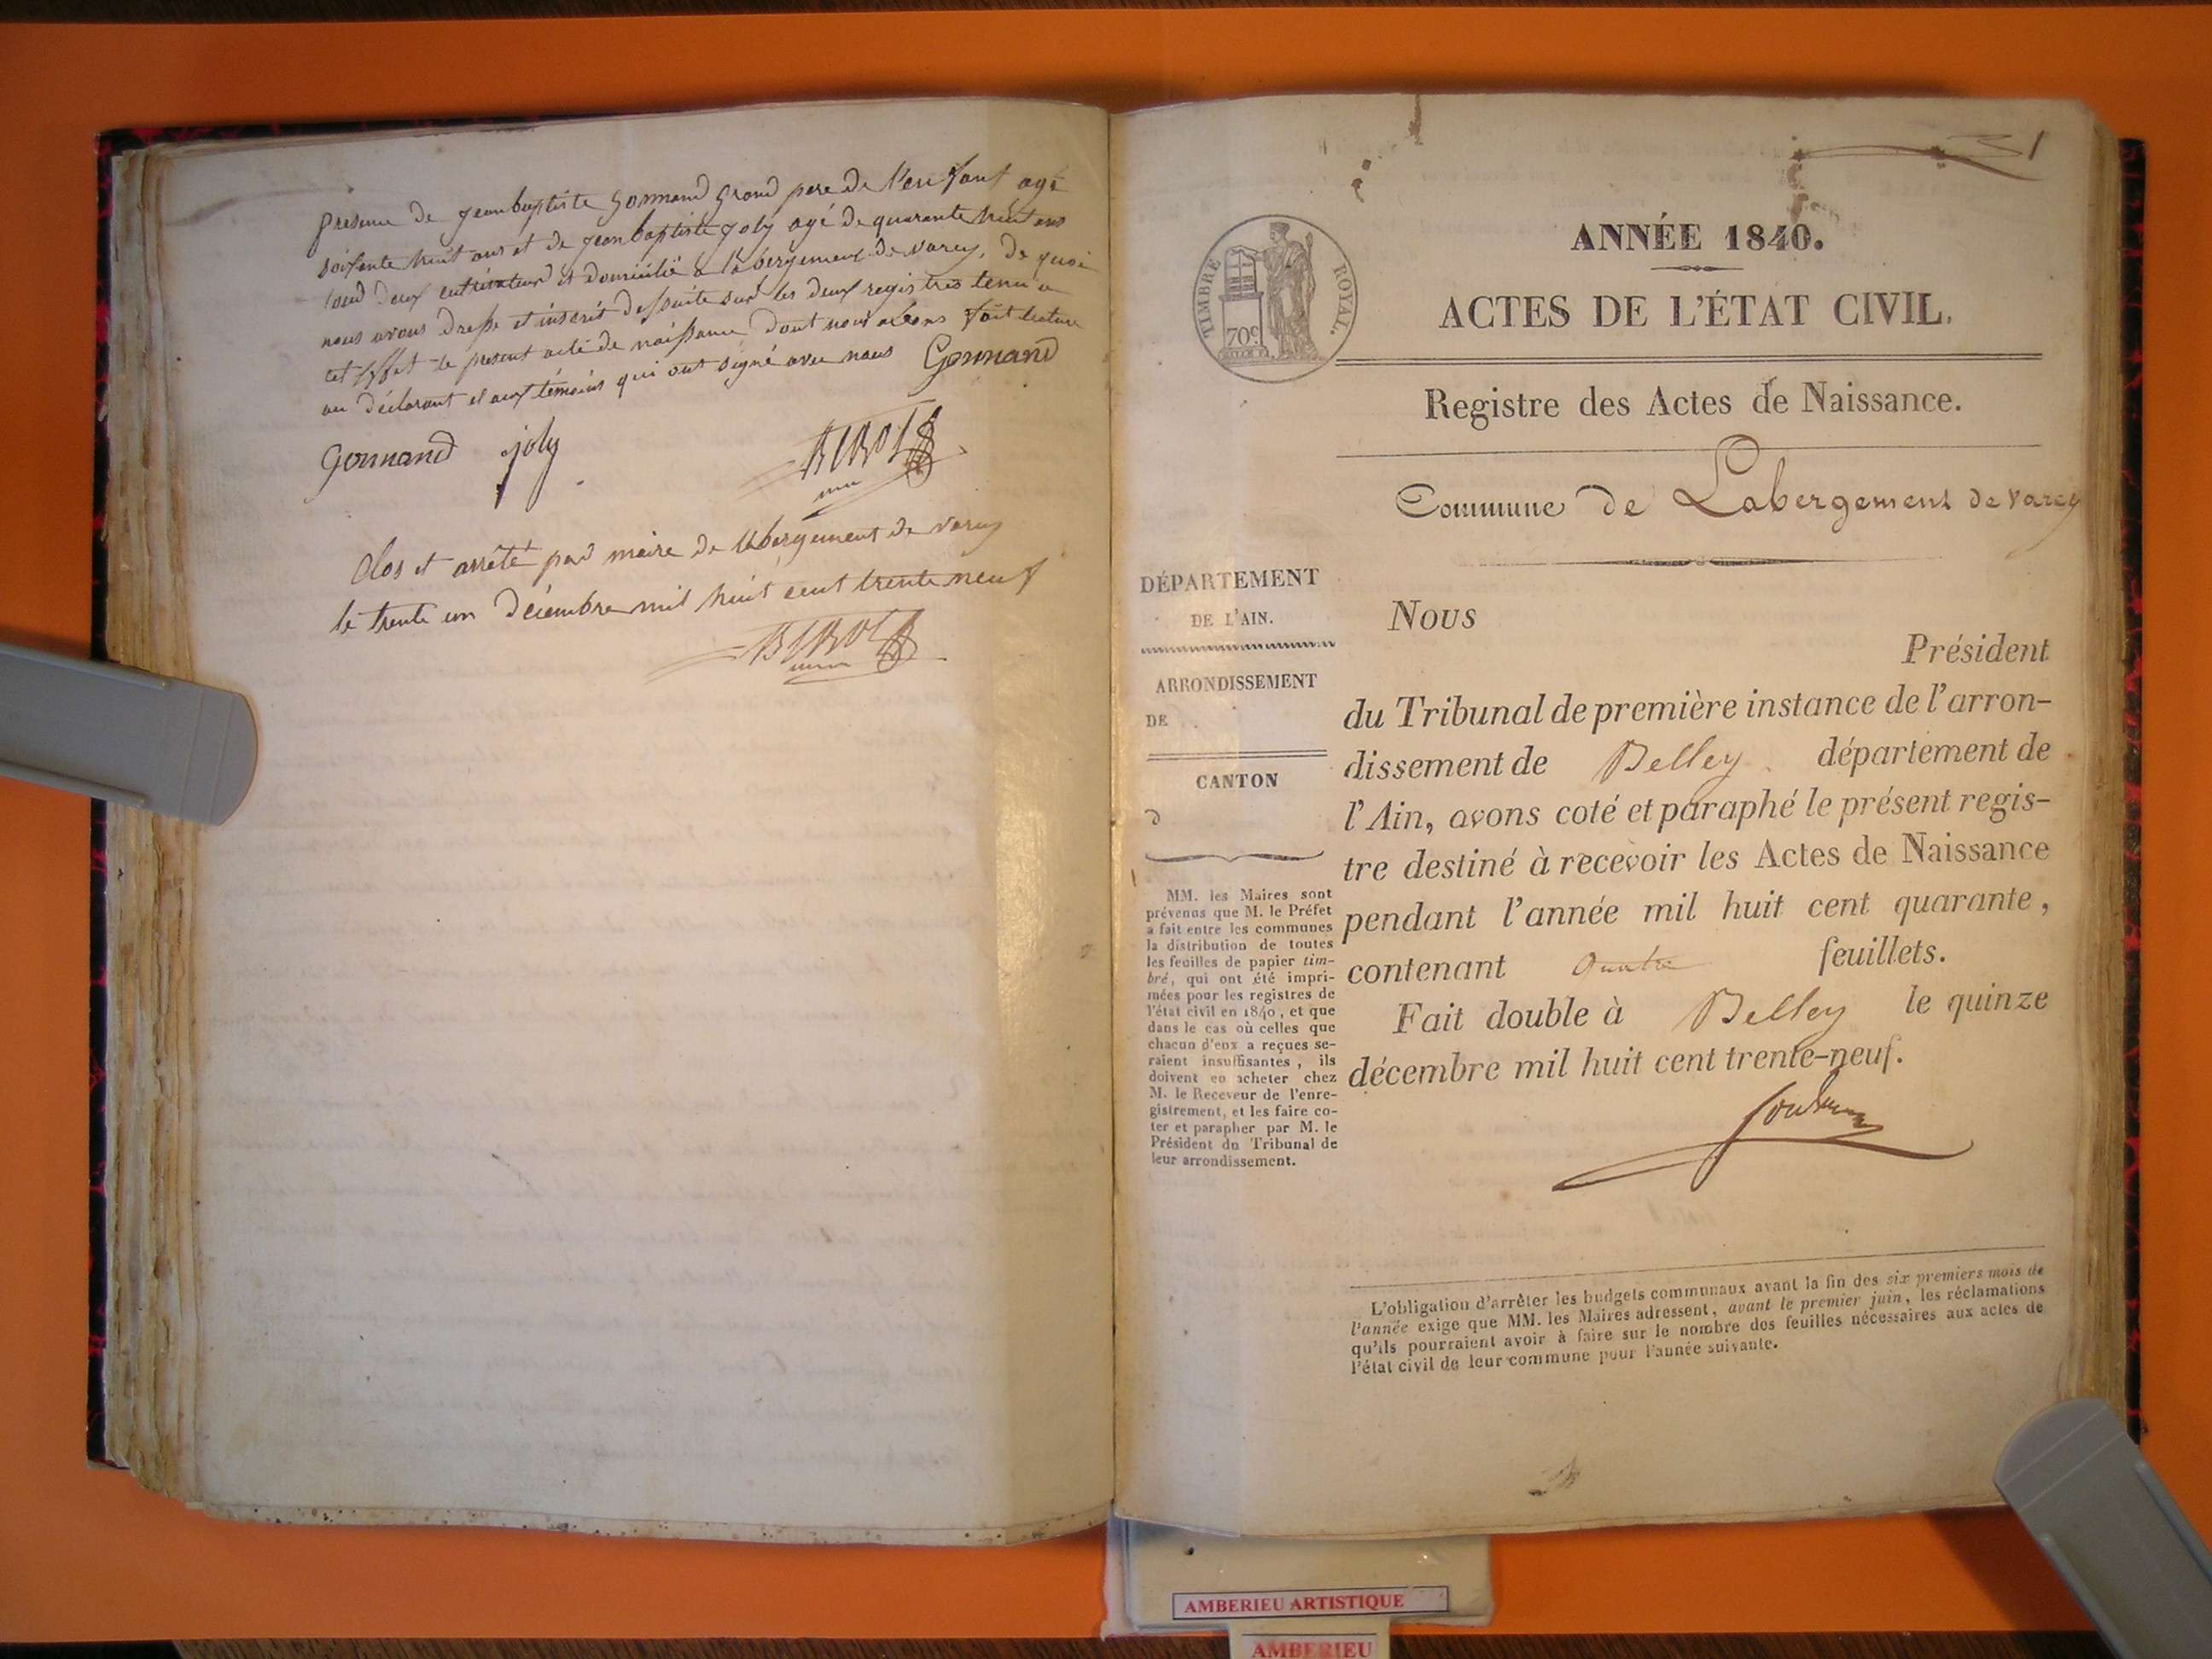 presence de jean baptiste Gonnand grand pere de l'enfant agé
soixante huit ans et de jean baptiste joly agé de quarante huit ans
tous deux cultivateurs et domicilié a labergement de varey, de quoi
nous avons dressé et inscrit de suite sur les deux registres tenu a
cet effet le present acte de naissance dont nous avons fait lecture
au déclarant et aux témoins qui ont signé avec nous Gonnand
Gonnand joly
Clos et arrêté par maire de labergement de varey
le trente un décembre mil huit cent trente neuf
31
ANNÉE 1840.
ACTES DE L'ÉTAT CIVIL.
TIMBRE ROYAL.
70c
Registre des Actes de Naissance.
Commune de Labergement de varey
DÉPARTEMENT
DE L'AIN.
ARRONDISSEMENT
DE
CANTON
D
MM. les Maires sont
prévenus que M. le Préfet
a fait entre les communes
la distribution de toutes
les feuilles de papier tim-
bré, qui ont été impri-
mées pour les registres de
l'état civil en 1840, et que
dans le cas où celles que
chacun d'eux a reçues se-
raient insuffisantes, ils
doivent en acheter chez
M. le Receveur de l'enre-
gistrement, et les faire co-
ter et parapher par M. le
Président du Tribunal de
leur arrondissement.
Nous
Président
du Tribunal de première instance de l'arron-
dissement de Belley département de
l'Ain, avons coté et paraphé le présent regis-
tre destiné à recevoir les Actes de Naissance
pendant l'année mil huit cent quarante,
contenant quatre feuillets.
Fait double à Belley le quinze
décembre mil huit cent trente-neuf.
L'obligation d'arrêter les budgets communaux avant la fin des six premiers mois de
l'année exige que MM. les Maires adressent, avant le premier juin, les réclamations
qu'ils pourraient avoir à faire sur le nombre des feuilles nécessaires aux actes de
l'état civil de leur commune pour l'année suivante.
AMBERIEU ARTISTIQUE
AMBERIEU